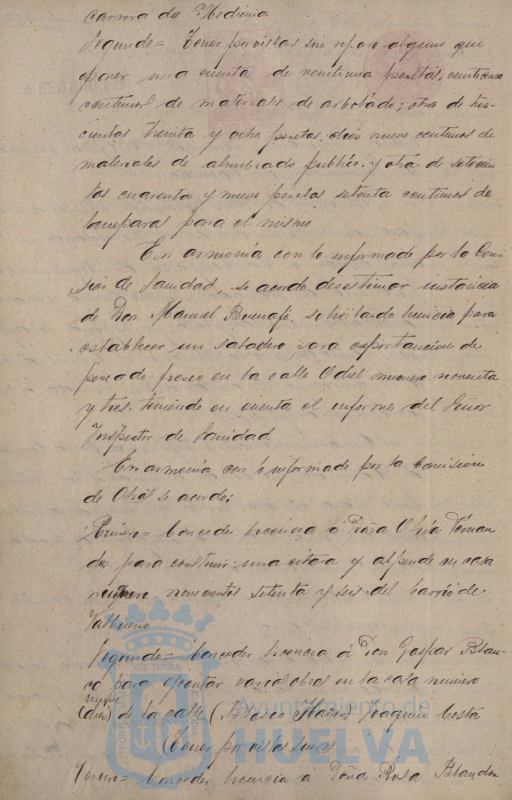 carrera de Medicina
Segundo= Tener por vistas sin reparo alguno que
oponer una cuenta de veintiuna pesetas, veinticinco
centimos de materiales de arbolado; otra de tres-
cientas treinta y ocho pesetas diez nueve centimos de
materiales de alumbrado publico y otra de setecien
tas cuarenta y nueve pesetas setenta centimos de
lamparas para el mismo
En armonía con lo informado por la Comi
sion de Sanidad, se acordo desestimar instancia
de Don Manuel solicitando licencia para
establecer un saladero para exportacion de
pescado fresco en la calle Odiel numero noventa
y tres. teniendo en cuenta el informe del Señor
Inspector de Sanidad
En armonía con lo informado por la Comisión
de Obras se acordo;
Primero= Conceder licencia á Doña
para construir una citara y en casa
numero novecientos setenta y seis del barrio de
Segundo= Conceder licencia á Don Gaspar Blan-
co para ejecutar varias obras en la casa numero
nueve
(dies) de la calle (Blasco Ibañez) Joaquin Costa
Tener por vistas
Tercero= Conceder licencia á Doña Rosa
Ayuntamiento de
HUELVA